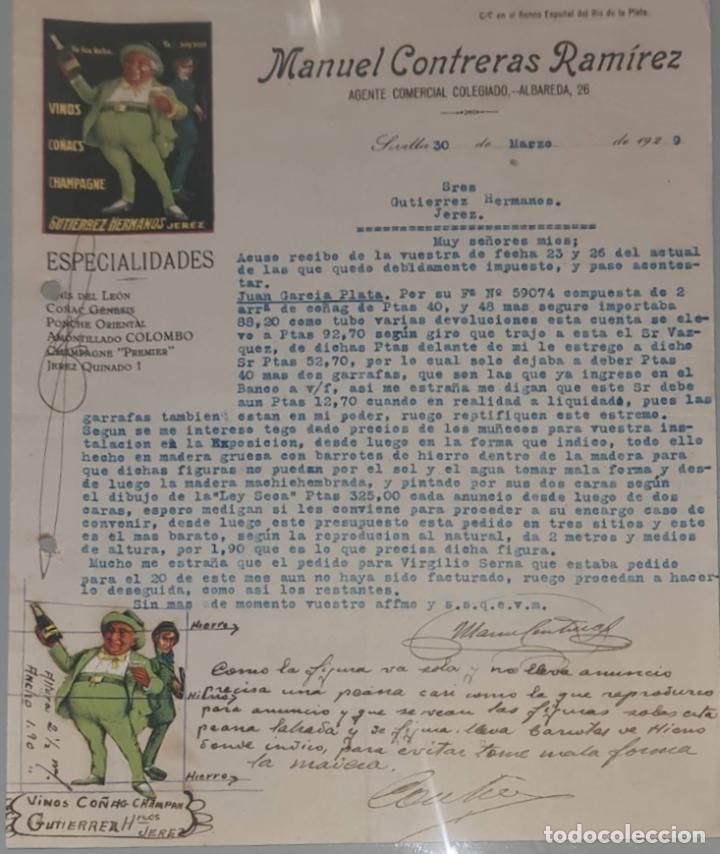 C/C en el Banco Español del Rio de la Plata.
Manuel Contreras Ramírez
AGENTE COMERCIAL COLEGIADO.--ALBAREDA, 26
Sevilla 30 de Marzo de 1929
VINOS
COÑACS
CHAMPAGNE
GUTIERREZ HERMANOS JEREZ
Sres
Gutierrez Hermanos.
Jerez.
ESPECIALIDADES
ANIS DEL LEÓN
COÑAC GÉNESIS
PONCHE ORIENTAL
AMONTILLADO COLOMBO
CHAMPAGNE "PREMIER"
JEREZ QUINADO 1
Muy señores mios;
Acuso recibo de la vuestra de fecha 23 y 26 del actual
de las que quedo debidamente impuesto, y paso acontes-
tar.
Juan Garcia Plata. Por su Fª Nº 59074 compuesta de 2
arrª de coñag de Ptas 40, y 48 mas seguro importaba
88,20 como tubo varias devoluciones esta cuenta se ele-
vo a Ptas 92,70 según giro que trajo a esta el Sr Vaz-
quez, de dichas Ptas delante de mi le estrego a dicho
Sr Ptas 52,70, por lo cual solo dejaba a deber Ptas
40 mas dos garrafas, que son las que ya ingreso en el
Banco a v/f, asi me estraña me digan que este Sr debe
aun Ptas 12,70 cuando en realidad a liquidado, pues las
garrafas tambien estan en mi poder, ruego reptifiquen este estremo.
Segun se me intereso tego dado precios de los muñecos para vuestra ins-
talacion en la Exposicion, desde luego en la forma que indico, todo ello
hecho en madera gruesa con barrotes de hierro dentro de la madera para
que dichas figuras no puedan por el sol y el agua tomar mala forma y des-
de luego la madera machiehembrada, y pintado por sus dos caras según
el dibujo de la "Ley Seca" Ptas 325,00 cada anuncio desde luego de dos
caras, espero medigan si les conviene para proceder a su encargo caso de
convenir, desde luego este presupuesto esta pedido en tres sitios y este
es el mas barato, según la reproducion al natural, da 2 metros y medios
de altura, por 1,90 que es lo que precisa dicha figura.
Mucho me estraña que el pedido para Virgilio Serna que estaba pedido
para el 20 de este mes aun no haya sido facturado, ruego procedan a hacer-
lo deseguida, como asi los restantes.
Sin mas de momento vuestro affmo y s.s.q.e.v.m.
Manuel Contreras
Hierro
Hierro
Hierro
Altura 2 ½ m/.
Ancho 1.90 "
Como la figura va sola y no lleva anuncio
precisa una peana casi como la que reproduzco
para anuncio y que se vean las figuras sobre esta
peana labrada y la figura lleva barrotes de Hierro
donde indico, para evitar tome mala forma
la madera.
VINOS COÑAG CHAMPAN
GUTIERREZ Hnos
JEREZ
todocoleccion